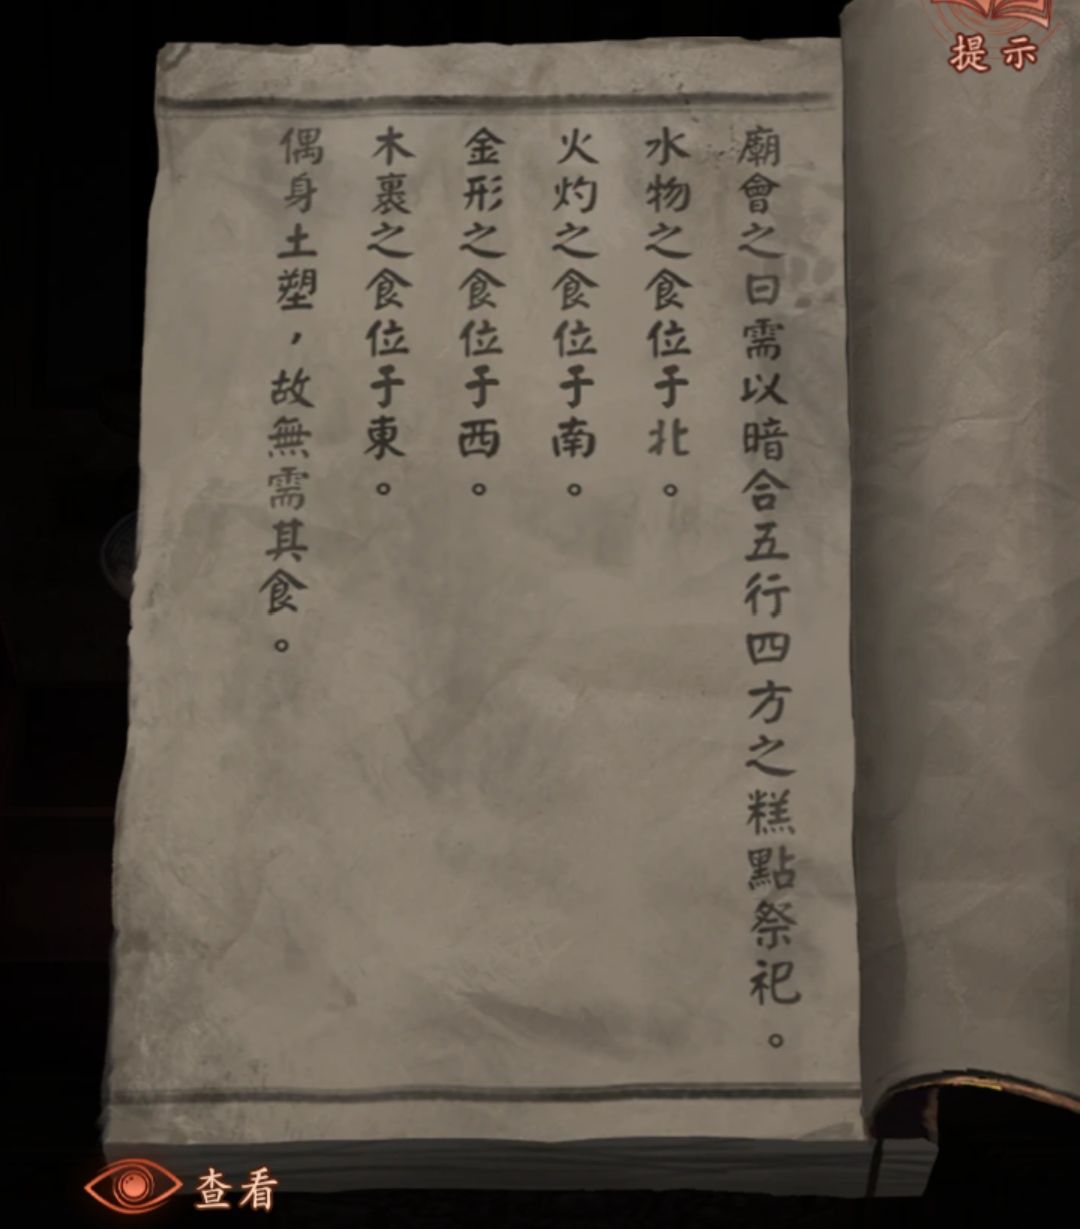 提示
廟會之日需以暗合五行四方之糕點祭祀。
水物之食位于北。
火灼之食位于南。
金形之食位于西。
木裹之食位于東。
偶身土塑，故無需其食。
查看